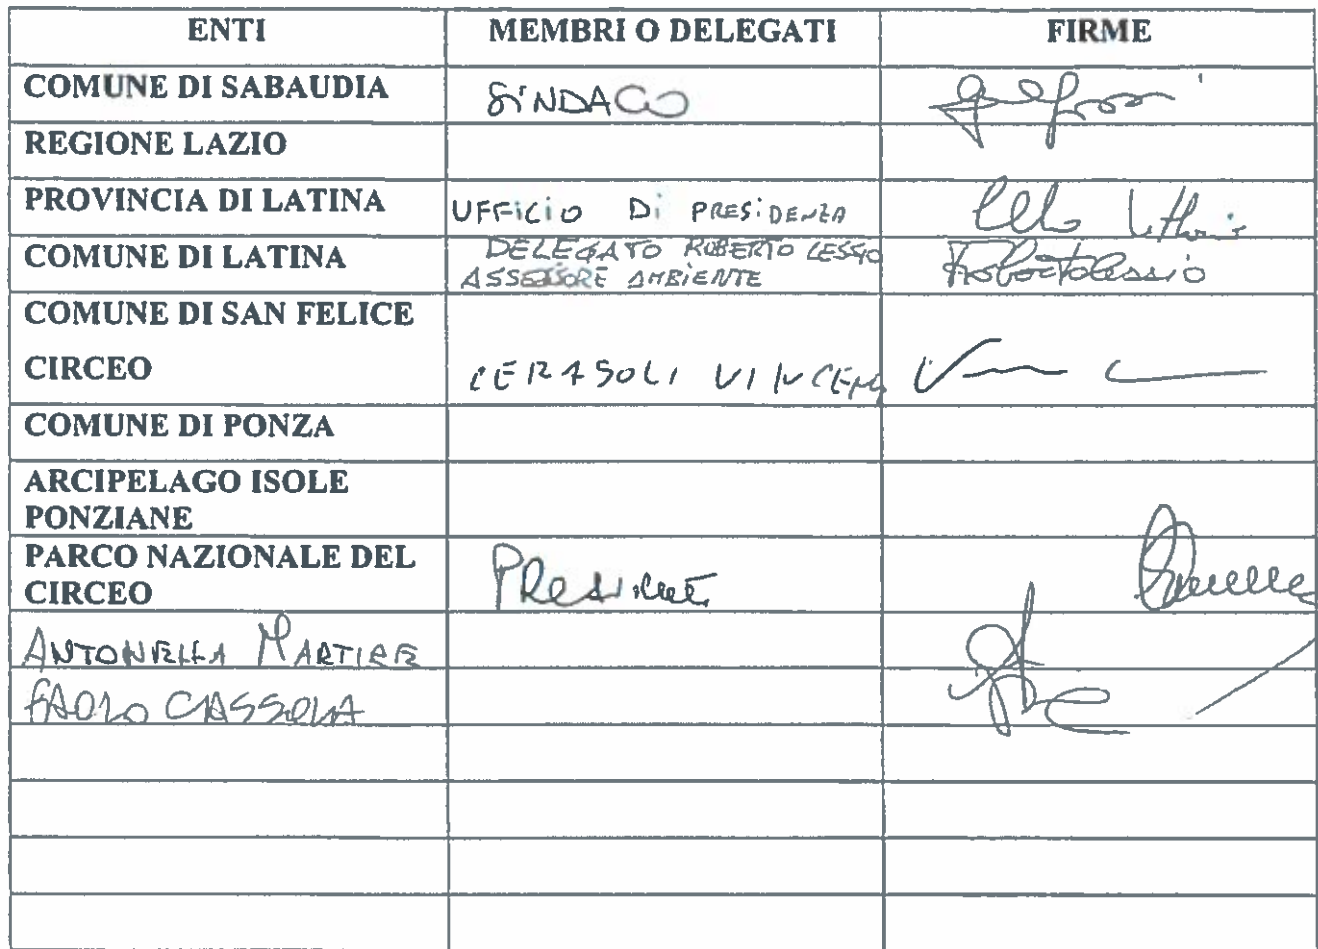 ENTI MEMBRI O DELEGATI FIRME
COMUNE DI SABAUDIA SINDACO
REGIONE LAZIO
PROVINCIA DI LATINA UFFICIO Di PRESIDENZA
COMUNE DI LATINA DELEGATO ROBERTO LESSIO Roberto Lessio
ASSESSORE AMBIENTE
COMUNE DI SAN FELICE
CIRCEO CERASOLI VINCENZO
COMUNE DI PONZA
ARCIPELAGO ISOLE
PONZIANE
PARCO NAZIONALE DEL
CIRCEO Presidente
ANTONELLA MARTIRE
PAOLO CASSOLA